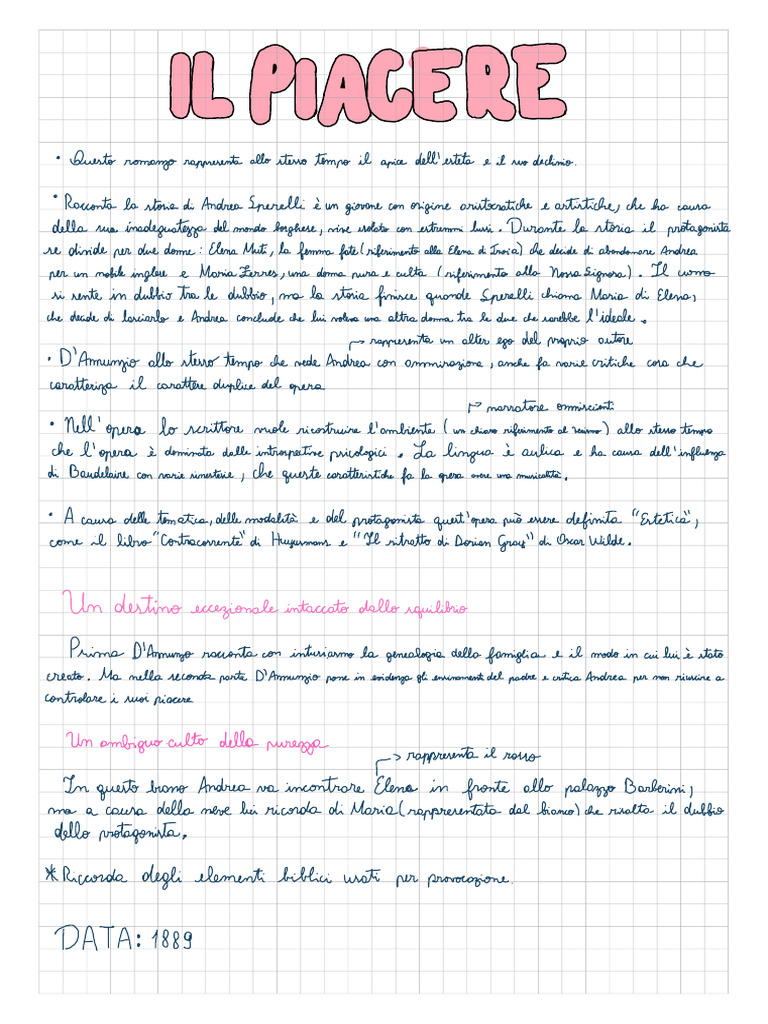 IL PIACERE
• Questo romanzo rappresenta allo stesso tempo il apice dell'esteta e il suo declinio.
• Racconta la storia di Andrea Sperelli è un giovane con origine aristocratiche e artistiche, che ha causa
della sua inadeguatezza del mondo borghese, vive isolato con estremmi lussi. Durante la storia il protagonista
se divide per due donne: Elena Muti, la femma fate (riferimento alla Elena di Troia) che decide di abandonare Andrea
per un nobile inglese e Maria Ferres, una donna pura e culta (riferimento alla Nossa Signora). Il uomo
si sente in dubbio tra le dubbio, ma la storia finisce quande Sperelli chiama Maria di Elena,
che decide di lasciarlo e Andrea conclude che lui voleva una altra donna tra le due che sarebbe l'ideale.
→ rappresenta un alter ego del proprio autore
• D'Annunzio allo stesso tempo che vede Andrea con ammirazione, anche fa varie critiche cosa che
caratteriza il carattere duplice del opera
→ narratore onniscienti
• Nell'opera lo scrittore vuole ricostruire l'ambiente (un chiaro riferimento al Verismo) allo stesso tempo
che l'opera è dominata dalle introspettive psicologici. La lingua è aulica e ha causa dell'influenza
di Baudelaire con varie simesterie, che queste caratteristiche fa la opera avere una musicalità.
• A causa delle tematica, delle modalità e del protagonista quest'opera può essere definita "Estetica",
come il libro "Controcorrente" di Huysmans e "Il ritratto di Dorian Gray" di Oscar Wilde.
Un destino eccezionale intaccato dallo squilibrio
Prima D'Annunzo racconta con intusiasmo la genealogia della famiglia e il modo in cui lui è stato
creato. Ma nella seconda parte D'Annunzio pone in evidenza gli del padre e critica Andrea per non riuscire a
controlare i suoi piacere
Un ambiguo culto della purezza
→ rappresenta il rosso
In questo brano Andrea va incontrare Elena in fronte allo palazzo Barberini,
ma a causa della neve lui ricorda di Maria (rappresentata dal bianco) che risalta il dubbio
dello protagonista.
* Riccorda degli elementi biblici usati per provocazione.
DATA: 1889